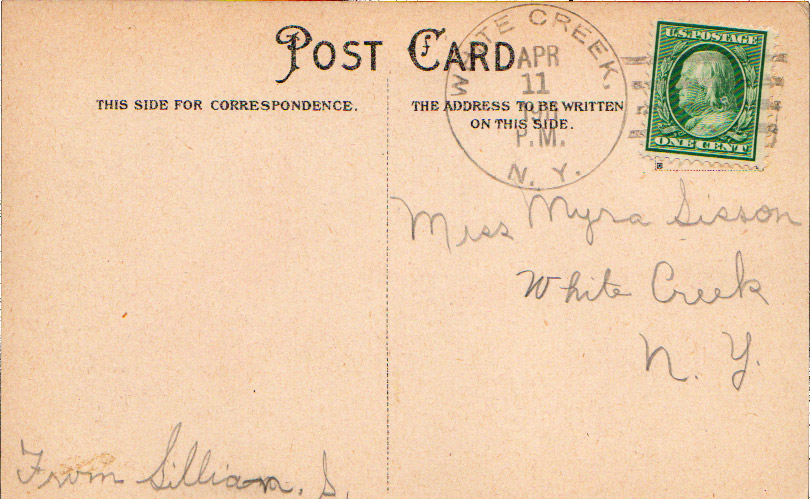 POST CARD
THIS SIDE FOR CORRESPONDENCE.
THE ADDRESS TO BE WRITTEN
ON THIS SIDE.
WHITE CREEK,
APR
11
1911
P.M.
N. Y.
U.S. POSTAGE
ONE CENT
Miss Myra Sisson
White Creek
N. Y.
From Lillian. S.